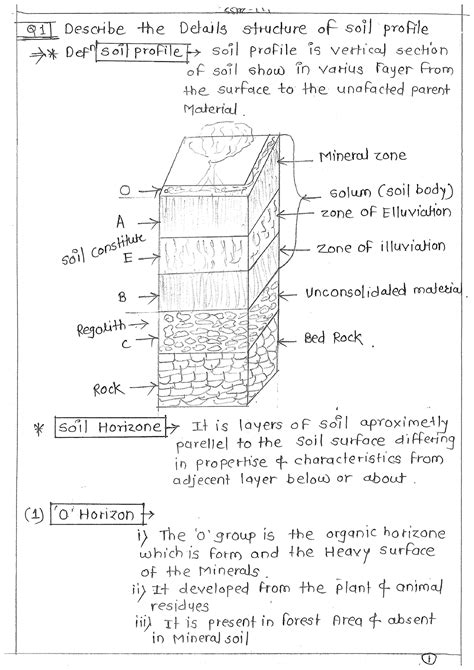 Q1] Describe the Details structure of soil profile
→* Defⁿ soil profile → soil profile is vertical section
of soil show in varius Layer from
the surface to the unafacted parent
Material.
Mineral zone
O
solum (soil body)
A
zone of Elluviation
soil constitute
E
zone of illuviation
B
unconsolidated material
Regolith
C
Bed Rock
Rock
* Soil Horizone → It is layers of soil aproximetly
parellel to the soil surface differing
in propertise & characteristics from
adjecent layer below or about.
(1) 'O' Horizon →
i) The 'O' group is the organic horizone
which is form and the Heavy surface
of the Minerals.
ii) It developed from the plant & animal
residyes
iii) It is present in forest Area & absent
in Mineral soil
1